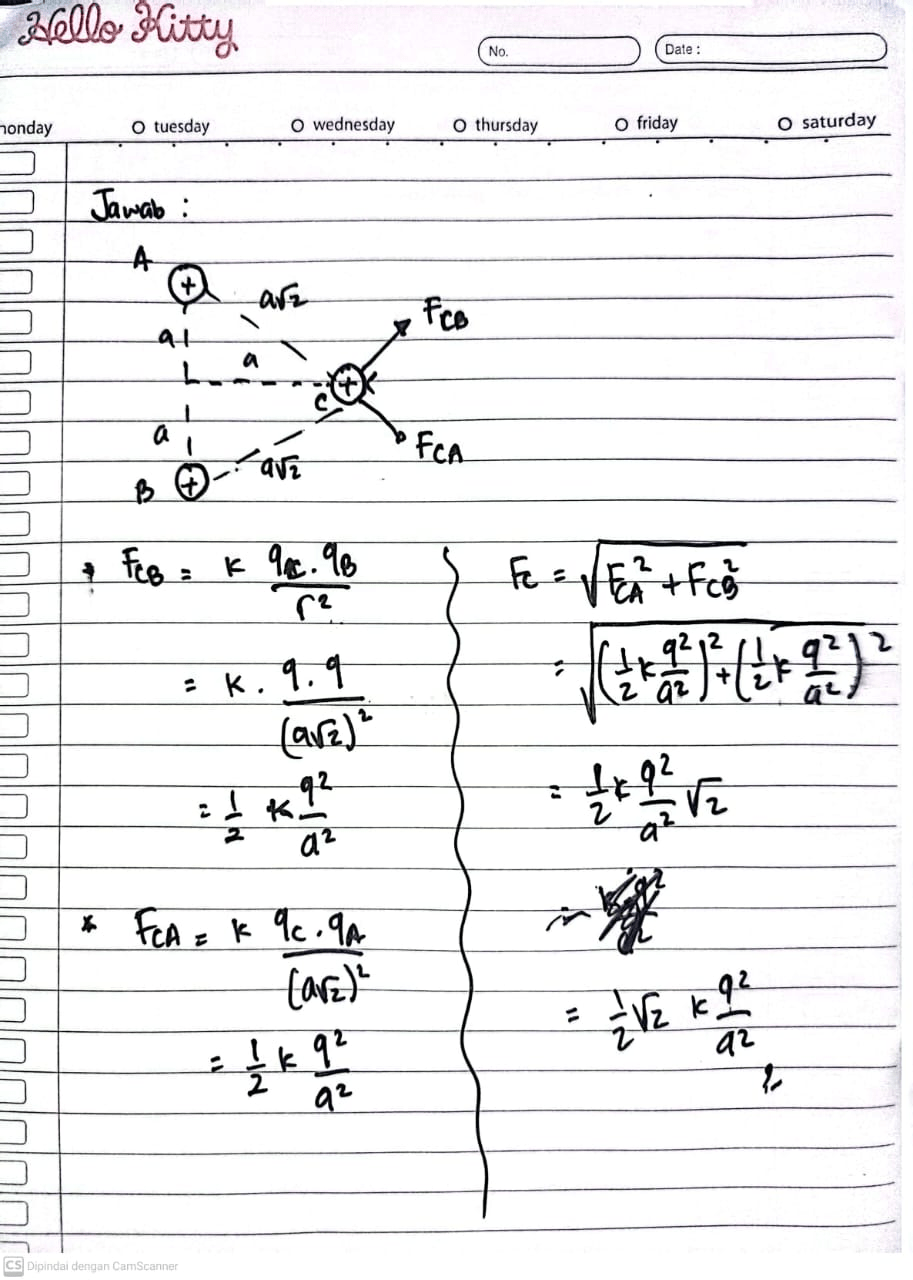 Hello Kitty
No.
Date :
monday O tuesday O wednesday O thursday O friday O saturday
Jawab :
A
+
a√2
F_CB
a
a
+
C
a
a√2
F_CA
B
+
* F_CB = k (q_C . q_B)/r²
= k . (q . q)/(a√2)²
= 1/2 k q²/a²
* F_CA = k (q_C . q_A)/(a√2)²
= 1/2 k q²/a²
F_C = √(F_CA² + F_CB²)
= √((1/2 k q²/a²)² + (1/2 k q²/a²)²)
= 1/2 k q²/a² √2
= 1/2 √2 k q²/a²
CS Dipindai dengan CamScanner